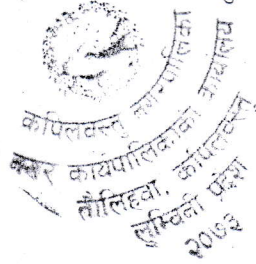 कपिलवस्तु नगरपालिका
नगर कार्यपालिकाको कार्यालय
तौलिहवा, कपिलवस्तु
लुम्विनी प्रदेश
२०७३